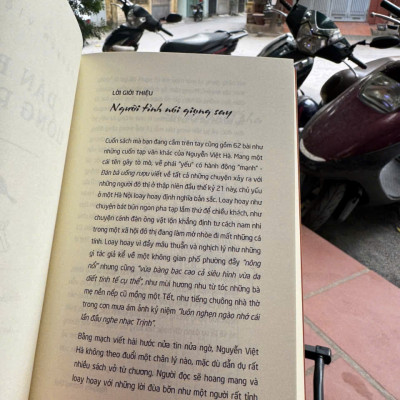 LỜI GIỚI THIỆU
Người tình nói giọng say
Cuốn sách mà bạn đang cầm trên tay cũng gồm 62 bài như
những cuốn tạp văn khác của Nguyễn Việt Hà. Mang một
cái tên gây tò mò, về phái "yếu" có hành động "mạnh" -
Đàn bà uống rượu viết về tất cả những chuyện xảy ra với
những người đô thị ở thập niên đầu thế kỷ 21 này, chủ yếu
ở một Hà Nội loay hoay định nghĩa bản sắc. Loay hoay như
chuyện bát bún ngon pha tạp lẩm thứ để chiều khách, như
chuyện cánh đàn ông vật lộn khẳng định tư cách nam nhi
trong một xã hội đô thị đang làm mờ nhòe đi mất những cá
tính. Loay hoay vì đầy mâu thuẫn và nghịch lý như những
gì tác giả kể về một không gian phố phường đầy "nông
nổi" nhưng cũng "vừa bảng bạc cao cả siêu hình vừa da
diết tinh tế cụ thể"; như mùi hương nhu từ tóc những bà
mẹ nền nếp cũ mồng một Tết, như tiếng chuông nhà thờ
trong cơn mưa ám ảnh ký niệm "luôn nghẹn ngào nhớ cái
lần đầu nghe nhạc Trịnh".
Bằng mạch viết hài hước nửa tin nửa ngờ, Nguyễn Việt
Hà không theo đuổi một chân lý nào, mặc dù dẫn dụ rất
nhiều sách vở từ chương. Người đọc sẽ hoang mang và
loay hoay với những lời đùa bỡn như một người rất tỉnh